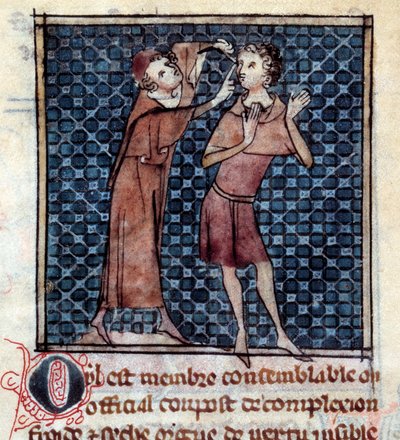 Oyl est membre consemblable ou
official compost de complexion
froide ⁊ seche de vertu visible